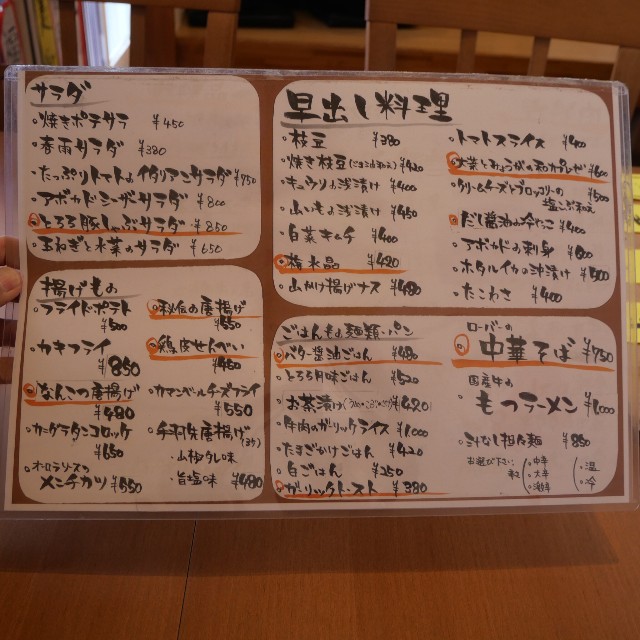 サラダ
焼きポテサラ ¥450
春雨サラダ ¥380
たっぷりトマトのイタリアンサラダ ¥750
アボカドシーザーサラダ ¥800
とろろ豚しゃぶサラダ ¥850
玉ねぎと水菜のサラダ ¥650
揚げもの
フライドポテト
¥500
カキフライ
¥850
なんこつ唐揚げ
¥480
カニグラタンコロッケ
¥650
オーロラソースの
メンチカツ ¥550
秘伝の唐揚げ
¥650
鶏皮せんべい
¥450
カマンベールチーズフライ
¥550
手羽先唐揚げ
・山椒タレ味
・旨塩味 ¥480
早出し料理
枝豆 ¥380
焼き枝豆(ごま油和え) ¥420
キュウリの浅漬け ¥400
山いもの浅漬け ¥450
白菜キムチ ¥400
梅水晶 ¥420
山かけ揚げナス ¥480
トマトスライス ¥400
大葉とみょうがの和カプレーゼ ¥600
クリームチーズとブロッコリーの
塩こぶ和え ¥500
だし醤油の冷やっこ ¥400
アボカドの刺身 ¥600
ホタルイカの沖漬け ¥500
たこわさ ¥400
ごはんもの・麺類・パン
バター醤油ごはん ¥480
とろろ月味ごはん ¥520
お茶漬け ¥420
牛肉のガーリックライス ¥1,000
たまごかけごはん ¥420
白ごはん ¥250
ガーリックトースト ¥380
ローバーの
中華そば ¥750
国産牛の
もつラーメン ¥1,000
汁なし担々麺 ¥850
お選び下さい
・中辛
・大辛
・激辛
・温
・冷